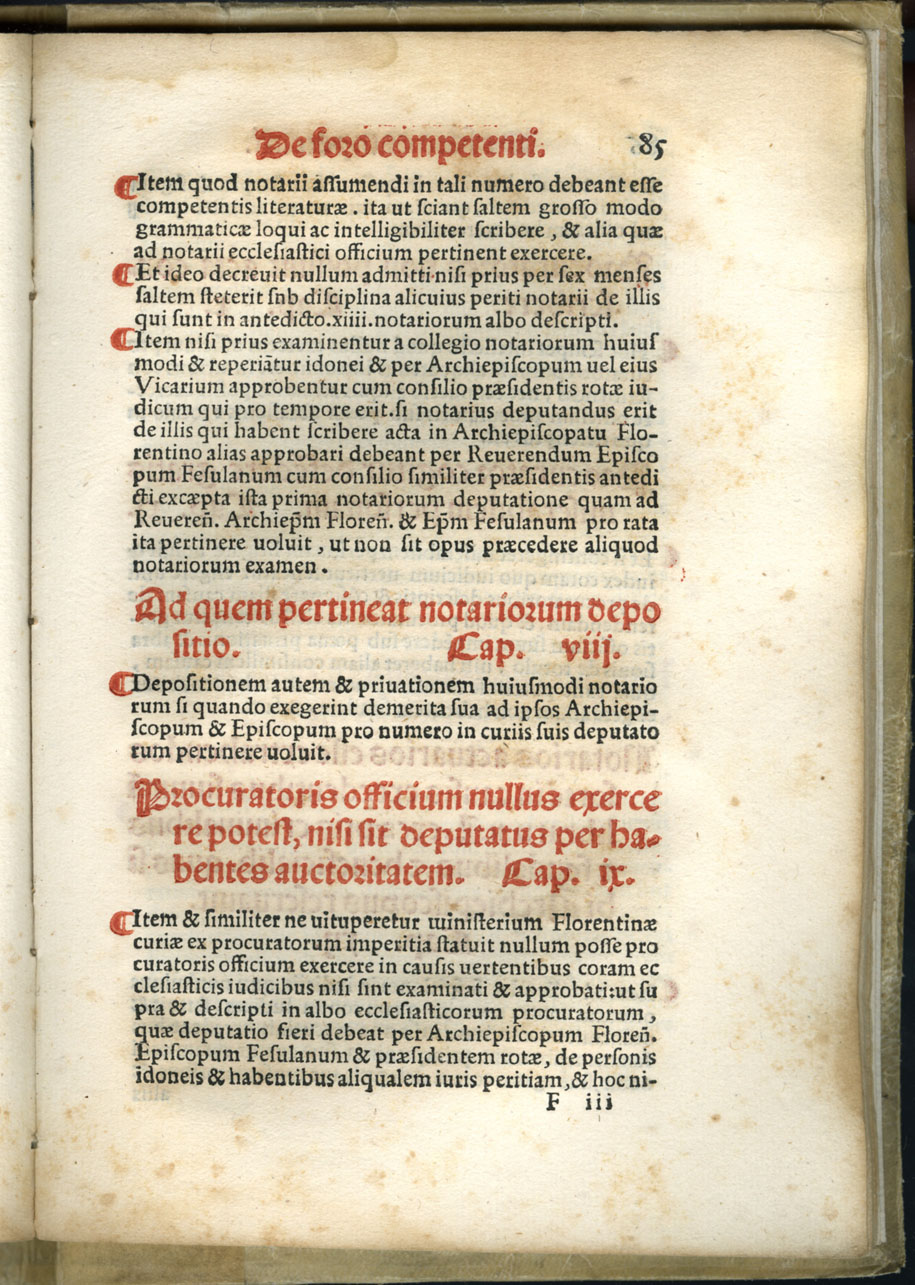 De foro competenti. 85
¶Item quod notarii aſſumendi in tali numero debeant eſſe
competentis literaturæ . ita ut ſciant ſaltem groſſo modo
grammaticæ loqui ac intelligibiliter ſcribere , & alia quæ
ad notarii eccleſiaſtici officium pertinent exercere.
¶Et ideo decreuit nullum admitti·niſi prius per ſex menſes
ſaltem ſteterit ſnb diſciplina alicuius periti notarii de illis
qui ſunt in antedicto.xiiii.notariorum albo deſcripti.
¶Item niſi prius examinentur a collegio notariorum huiuſ
modi & reperiãtur idonei & per Archiepiſcopum uel eius
Vicarium approbentur cum conſilio præſidentis rotæ iu-
dicum qui pro tempore erit.ſi notarius deputandus erit
de illis qui habent ſcribere acta in Archiepiſcopatu Flo-
rentino alias approbari debeant per Reuerendum Epiſco
pum Feſulanum cum conſilio ſimiliter præſidentis antedi
cti excæpta iſta prima notariorum deputatione quam ad
Reueren̄. Archiep̄m Floren̄. & Ep̄m Feſulanum pro rata
ita pertinere uoluit , ut non ſit opus præcedere aliquod
notariorum examen .
Ad quem pertineat notariorum depo
ſitio. Cap. viij.
¶Depoſitionem autem & priuationem huiuſmodi notario
rum ſi quando exegerint demerita ſua ad ipſos Archiepi-
ſcopum & Epiſcopum pro numero in curiis ſuis deputato
rum pertinere uoluit.
Procuratoris officium nullus exerce
re poteſt, niſi ſit deputatus per ha-
bentes auctoritatem. Cap. ix.
¶Item & ſimiliter ne uituperetur miniſterium Florentinæ
curiæ ex procuratorum imperitia ſtatuit nullum poſſe pro
curatoris officium exercere in cauſis uertentibus coram ec
cleſiaſticis iudicibus niſi ſint examinati & approbati:ut ſu
pra & deſcripti in albo eccleſiaſticorum procuratorum ,
quæ deputatio fieri debeat per Archiepiſcopum Floren̄.
Epiſcopum Feſulanum & præſidentem rotæ, de perſonis
idoneis & habentibus aliqualem iuris peritiam,& hoc ni-
F iii